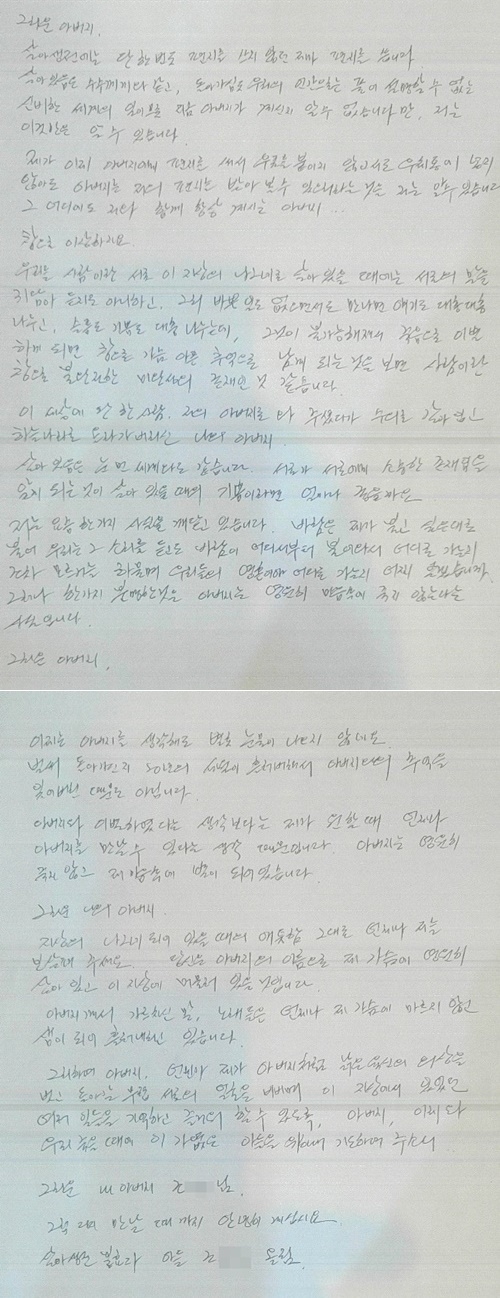 그리운 아버지.
살아생전에는 단 한번도 편지를 쓰지 않던 제가 편지를 씁니다.
살아있음은 수수께끼와 같고, 돌아가심도 우리의 인간으로는 풀어 설명할 수 없는
신비한 세계의 일이므로 지금 아버지가 계신지 알 수 없습니다만, 저는
이것만은 알 수 있습니다.
제가 이리 아버지에게 편지를 써서 우표를 붙이지 않고서도 우체통에 넣지
않아도 아버지는 저의 편지를 받아 볼 수 있으리라는 것을 저는 알 수 있습니다
그 어디에도 저와 함께 항상 계시는 아버지 ...
참으로 이상하지요.
우리들 사람이란 서로 이 지상의 나그네로 살아 있을 때에는 서로의 말을
귀담아 듣지도 아니하고, 그리 바쁜 일도 없으면서도 만나면 얘기도 대충대충
나누고, 슬픔도 기쁨도 대충 나누는데, 그것이 불가능해져서 죽음으로 이별
하게 되면 참으로 가슴 아픈 추억으로 남게 되는 것을 보면 사람이란
참으로 불완전한 미완성의 존재인 것 같습니다.
이 세상에 단 한사람. 저의 아버지로 와 주셨다가 수의로 갈아입고
하늘나라로 돌아가버리신 나의 아버지.
살아 있음은 눈 먼 세계와도 같습니다. 서로가 서로에게 소중한 존재임을
알지 못하는 것이 살아 있을 때의 기쁨이라면 얼마나
저는 요즘 한가지 사실을 깨닫고 있습니다. 바람은 제가 불고 싶은대로
불어 우리는 그 소리를 듣고도 바람이 어디서부터 불어와서 어디로 가는지
모르는 우리들의 영혼이 어디로 가는지 어찌 알겠습니까.
그러나 한가지 분명한것은 아버지는 영원히 마음속에 죽지 않는다는
사실입니다.
그리운 아버지,
이제는 아버지를 생각해도 별로 눈물이 나오지 않네요.
벌써 돌아가신지 20년의 세월이 흘러버려서 아버지와의 추억을
잊어버린 때문은 아닙니다.
아버지와 이별하였다는 생각보다는 제가 원할 때 언제나
아버지를 만날 수 있다는 생각 때문입니다. 아버지는 영원히
죽지 않고 제 가슴속에 별이 되어있습니다.
그리운 나의 아버지.
지상의 나그네 되어 있을 때의 애틋함 그대로 언제나 저를
보살펴 주세요. 당신은 아버지의 이름으로 제 가슴에 영원히
살아 있고 이 지상에 머물러 있을 것입니다.
아버지께서 가르치신 말, 노래들은 언제나 제 가슴에 마르지 않는
샘이 되어 흘러내리고 있습니다.
그리하여 아버지. 언젠가 제가 아버지처럼 낡은 육신의 의상을
벗고 돌아가는 서로의 얼굴을 비비며 이 지상에서 있었던
여러 일들을 기억하고 즐거워 할 수 있도록, 아버지, 이리 와
우리 늙을 때에 이 가엾은 아들을 위하여 기도하여 주소서
그리운 내 아버지 조 님.
그럼 다시 만날 때 까지 안녕히 계십시요.
살아생전 불효자 아들 조 올림.